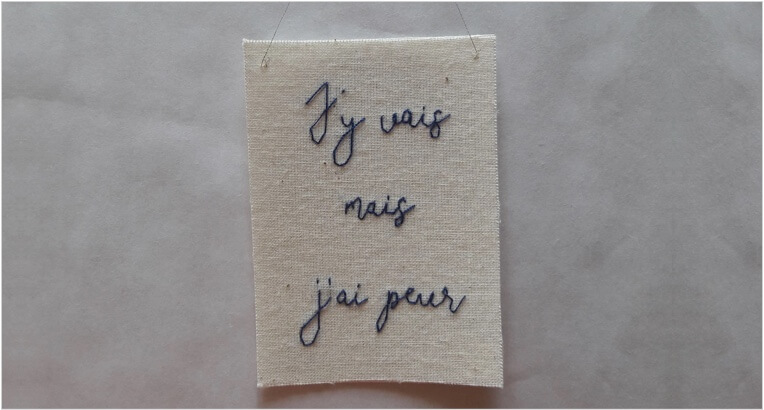 J'y vais
mais
j'ai peur